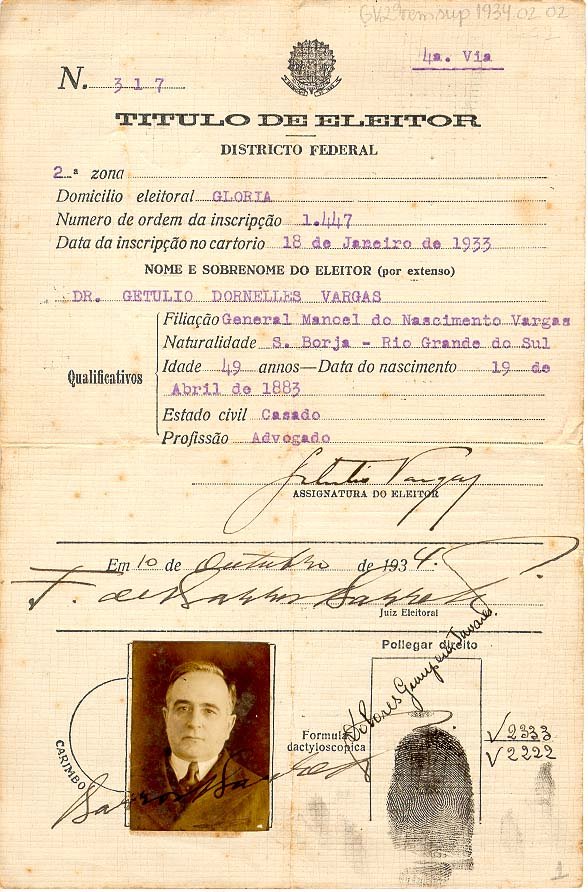 GV 29 rem.sup 1934.02.02
4a. Via
N. 317
TITULO DE ELEITOR
DISTRICTO FEDERAL
2.ª zona
Domicilio eleitoral GLORIA
Numero de ordem da inscripção 1.447
Data da inscripção no cartorio 18 de Janeiro de 1933
NOME E SOBRENOME DO ELEITOR (por extenso)
DR. GETULIO DORNELLES VARGAS
Qualificativos
Filiação General Manoel do Nascimento Vargas
Naturalidade S. Borja - Rio Grande do Sul
Idade 49 annos—Data do nascimento 19 de
Abril de 1883
Estado civil Casado
Profissão Advogado
Getulio Vargas
ASSIGNATURA DO ELEITOR
Em 10 de Outubro de 1934.
F. de Barros Barreto
Juiz Eleitoral
Pollegar direito
Dolores
Tavares
CARIMBO
Formula dactyloscopica
V 2333
V 2222
Barros Barreto
1